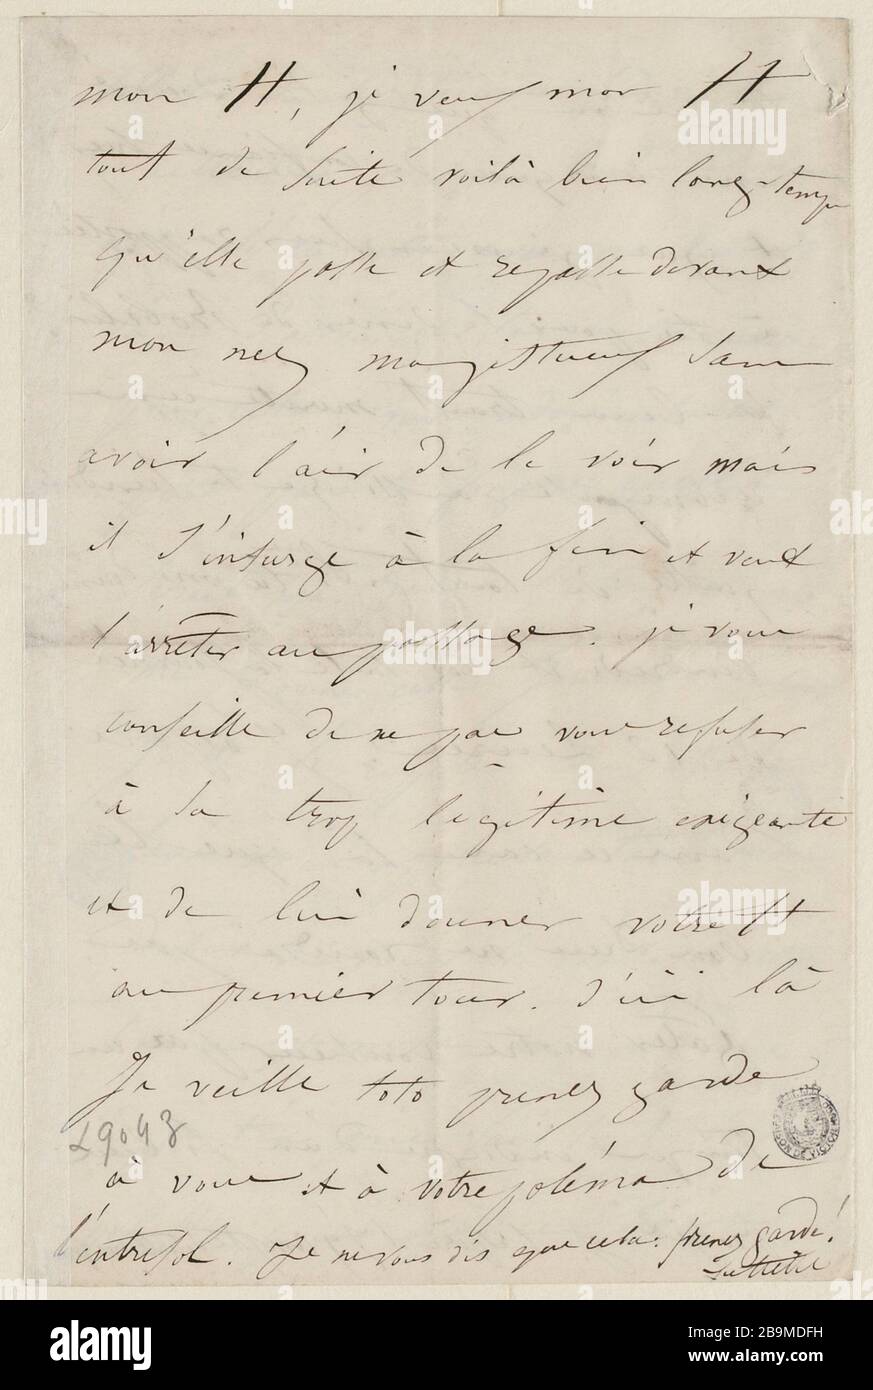 mon H, je veux mon H
tout de suite voilà bien long-temps
qu'elle passe et repasse devant
mon nez majestueux sans
avoir l'air de le voir mais
il s'insurge à la fin et veut
l'arrêter au passage. je vous
conseille de ne pas vous refuser
à sa trop légitime exigeante
et de lui donner votre H
au premier tour. d'ici là
Je veille toto prenez garde
L9043
à vous et à votre
l'entresol. Je ne vous dis que cela. prenez garde!
Juliette
MAISON DE VICTOR HUGO
alamy
Image ID: 2B9MDFH
www.alamy.com